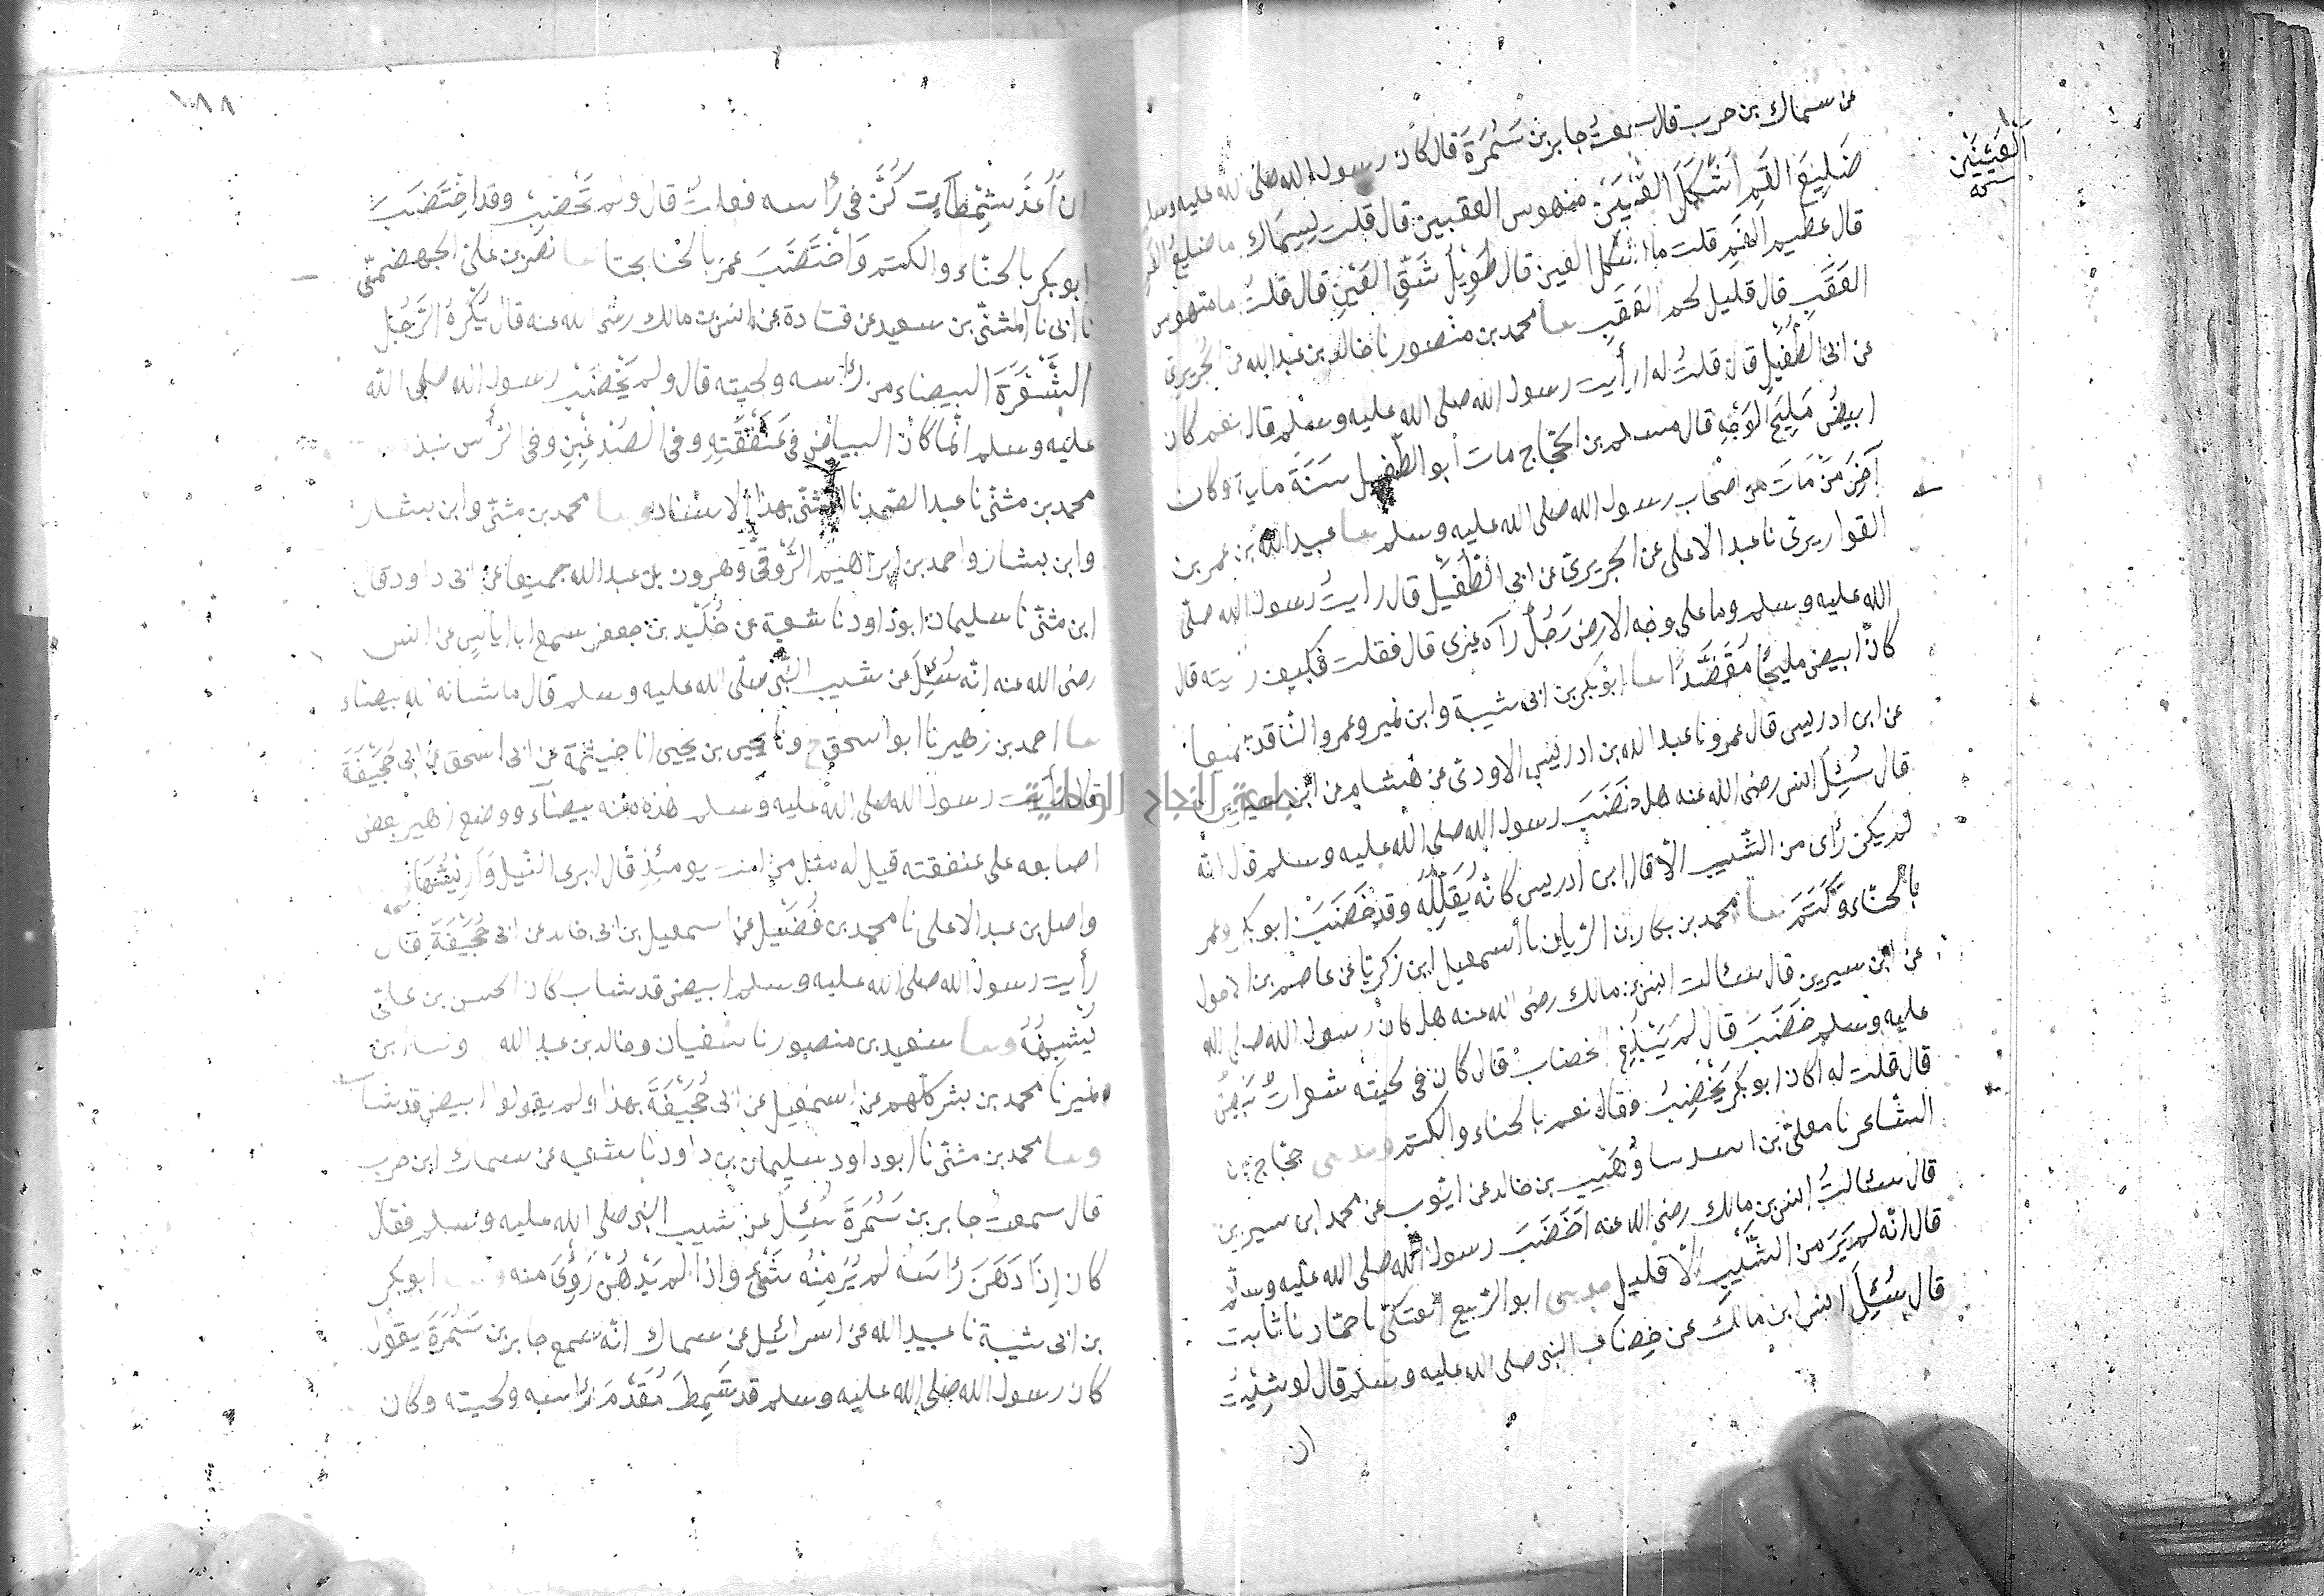 عن سماك بن حرب قال سمعتُ جابر بن سَمُرَة قال كان رسول الله صلى الله عليه وسلم
ضَلِيعَ الفَمِ أَشْكَلَ العَيْنَيْنِ منهوس العقبين قال قلت لِسِمَاكٍ ما ضليع الفم
العَيْنَيْنِ
قال عظيم الفَمِ قلت ما اشكل العين قال طَوِيلُ شَقِّ العَيْنِ قال قلتُ ما منهوس
العَقَبِ قال قليل لحم العَقَبِ حدثنا محمد بن منصور نا خالد بن عبد الله عن الجُرَيري
عن ابى الطُّفَيْلِ قال قلتُ له أرأيت رسول الله صلى الله عليه وسلم قال نعم كان
ابيضُ مَلِيحَ الوَجْهِ قال مسلم بن الحجّاج مات أبو الطُّفَيل سَنَةَ ماية وكان
آخِرَ مَنْ مَاتَ من اصْحاب رسول الله صلى الله عليه وسلم حدثنا عبيد الله بن عمر بن
القواريرى نا عبد الاعلى عن الجريرى عن ابى الطُّفَيْل قال رايتُ رسول الله صلى
الله عليه وسلم وما على وجْه الارض رَجُلٌ رآه غيرى قال فقلت فكيف رَيته قال
كان ابيض مليحًا مُقَصَّدًا حدثنا ابو بكر بن ابى شيبة وابن نمير وعمرو الناقد جميعا
عن ابن ادريس قال عمرو نا عبد الله بن ادريس الاودى عن هشام عن ابن سيرين
قال سُئِلَ انس رضى الله عنه هل خَضَبَ رسول الله صلى الله عليه وسلم قال انه
لم يكن رأى من الشيب الّا قال ابن ادريس كانّه يُقَلِّلُهُ وقد خَضَبَ ابو بكر وعمر
بالحنّاء وَكَتَمَ حدثنا محمد بن بكار بن الريان نا أسمعيل ابن زكريّا عن عاصم بن الاحول
عن ابْن سيرين قال سئالت انس بن مالك رضى الله عنه هل كان رسول الله صلى الله
عليه وسلم خَضَبَ قال لم يَبْلُغِ الخضابْ قال كان فى لحيته شعراتٌ بِيضٌ
قال قلت له اكان ابو بكر يَخْضِبُ فقال نعم بالحناء والكتم وحدثنى حجاج بن
الشاعر نا معلّى بن اسد نا وُهَيْب بن خالد عن ايّوب عن محمد ابن سيرين
قال سئالتُ انس بن مالك رضى الله عنه اَخَضَبَ رسول الله صلى الله عليه وسلم
قال انّه لم يَرَ من الشَّيْبِ الّا قليل حدثنى ابو الرّبيع العتكى نا حمّاد نا ثابت
قال سُئِلَ انس ابن مالك عن خِضاب النبى صلى الله عليه وسلم قال لو شِئْتُ
ان
١٨٨
ان أعُدَّ شَمَطاتٍ كُنَّ فى رأسه فعلتُ قال ولم يَخْضِبْ وقد اخْتَضَبَ
ابو بكر بالحنّاء والكتم وَاخْتَضَبَ عمر بالحنّا بحتا حدثنا نصر بن على الجهضمىّ
نا ابى نا المثنّى بن سعيد عن قتادة عن انس بن مالك رضى الله عنه قال يُكْرَهُ الرَّجُل
الشَّعْرَةَ البيضاء من رأسه ولحيته قال ولم يَخْضَبْ رسول الله صلى الله
عليه وسلم انّما كان البياض فى عَنْفَقَتِهِ وفى الصُدْغَيْنِ وفى الرأس نبذ
محمد بن مثنّى نا عبد الصّمد نا المثنّى بهذا الاسناد وحدثنا محمد بن مثنّى وابن بشار
وابن بشار واحمد بن ابراهيم الدَّوْرقىّ وهرون بن عبد الله جميعا عن ابى داود قال
ابن مثنّى نا سليمان ابو داود نا شعبة عن خُلَيْد بن جعفر سمع ابا اياسٍ عن انس
رضى الله عنه انّه سُئِلَ عن شيب النّبى صلّى الله عليه وسلم قال ما شانه الله ببيضاء
حدثنا احمد بن زهير نا ابو اسحق ح ونا يحيى بن يحيى انا خيثمة عن ابى اسحق عن ابى جُحَيْفَة
قال رأيت رسول الله صلى الله عليه وسلم هذه منه بيضآء ووضع زهير بعض
اصابعه على عنفقته قيل له مثل من انت يومئِذٍ قال ابرى النّبل وَاَرِيشُهَا
واصل بن عبد الاعلى نا محمد بن فُضَيْل عن اسمعيل بن ابى خالد عن ابى جُحَيْفَةَ قال
رأيت رسول الله صلى الله عليه وسلم ابيض قد شاب كان الحسن بن علىّ
يُشْبِهُهُ وحدثنا سعيد بن منصور نا سفيان وخالد بن عبد الله ونا ابن
نمير نا محمد بن بشر كلّهم عن اسمعيل عن ابى جُحَيْفَةَ بهذا ولم يقولوا ابيض قد شاب
وحدثنا محمد بن مثنّى نا ابو داود سليمان بن داود نا شعبه عن سماك ابن حرب
قال سمعت جابر بن سَمُرَةَ سُئِلَ عن شيب النبى صلى الله عليه وسلم فقال
كان إِذَا دَهَنَ رَأسَهُ لم يُرَ مِنْهُ شَئٌ واذا لم يَدْهُنْ رُؤِىَ منه وحدثنا ابو بكر
بن ابى شيبة نا عبيد الله عن اسرائيل عن سماك انّه سمع جابر بن سَمُرَةَ يقول
كان رسول الله صلى الله عليه وسلم قد شَمِطَ مُقَدَّمَ رأسه ولحيته وكان
جامعة النجاح الوطنية